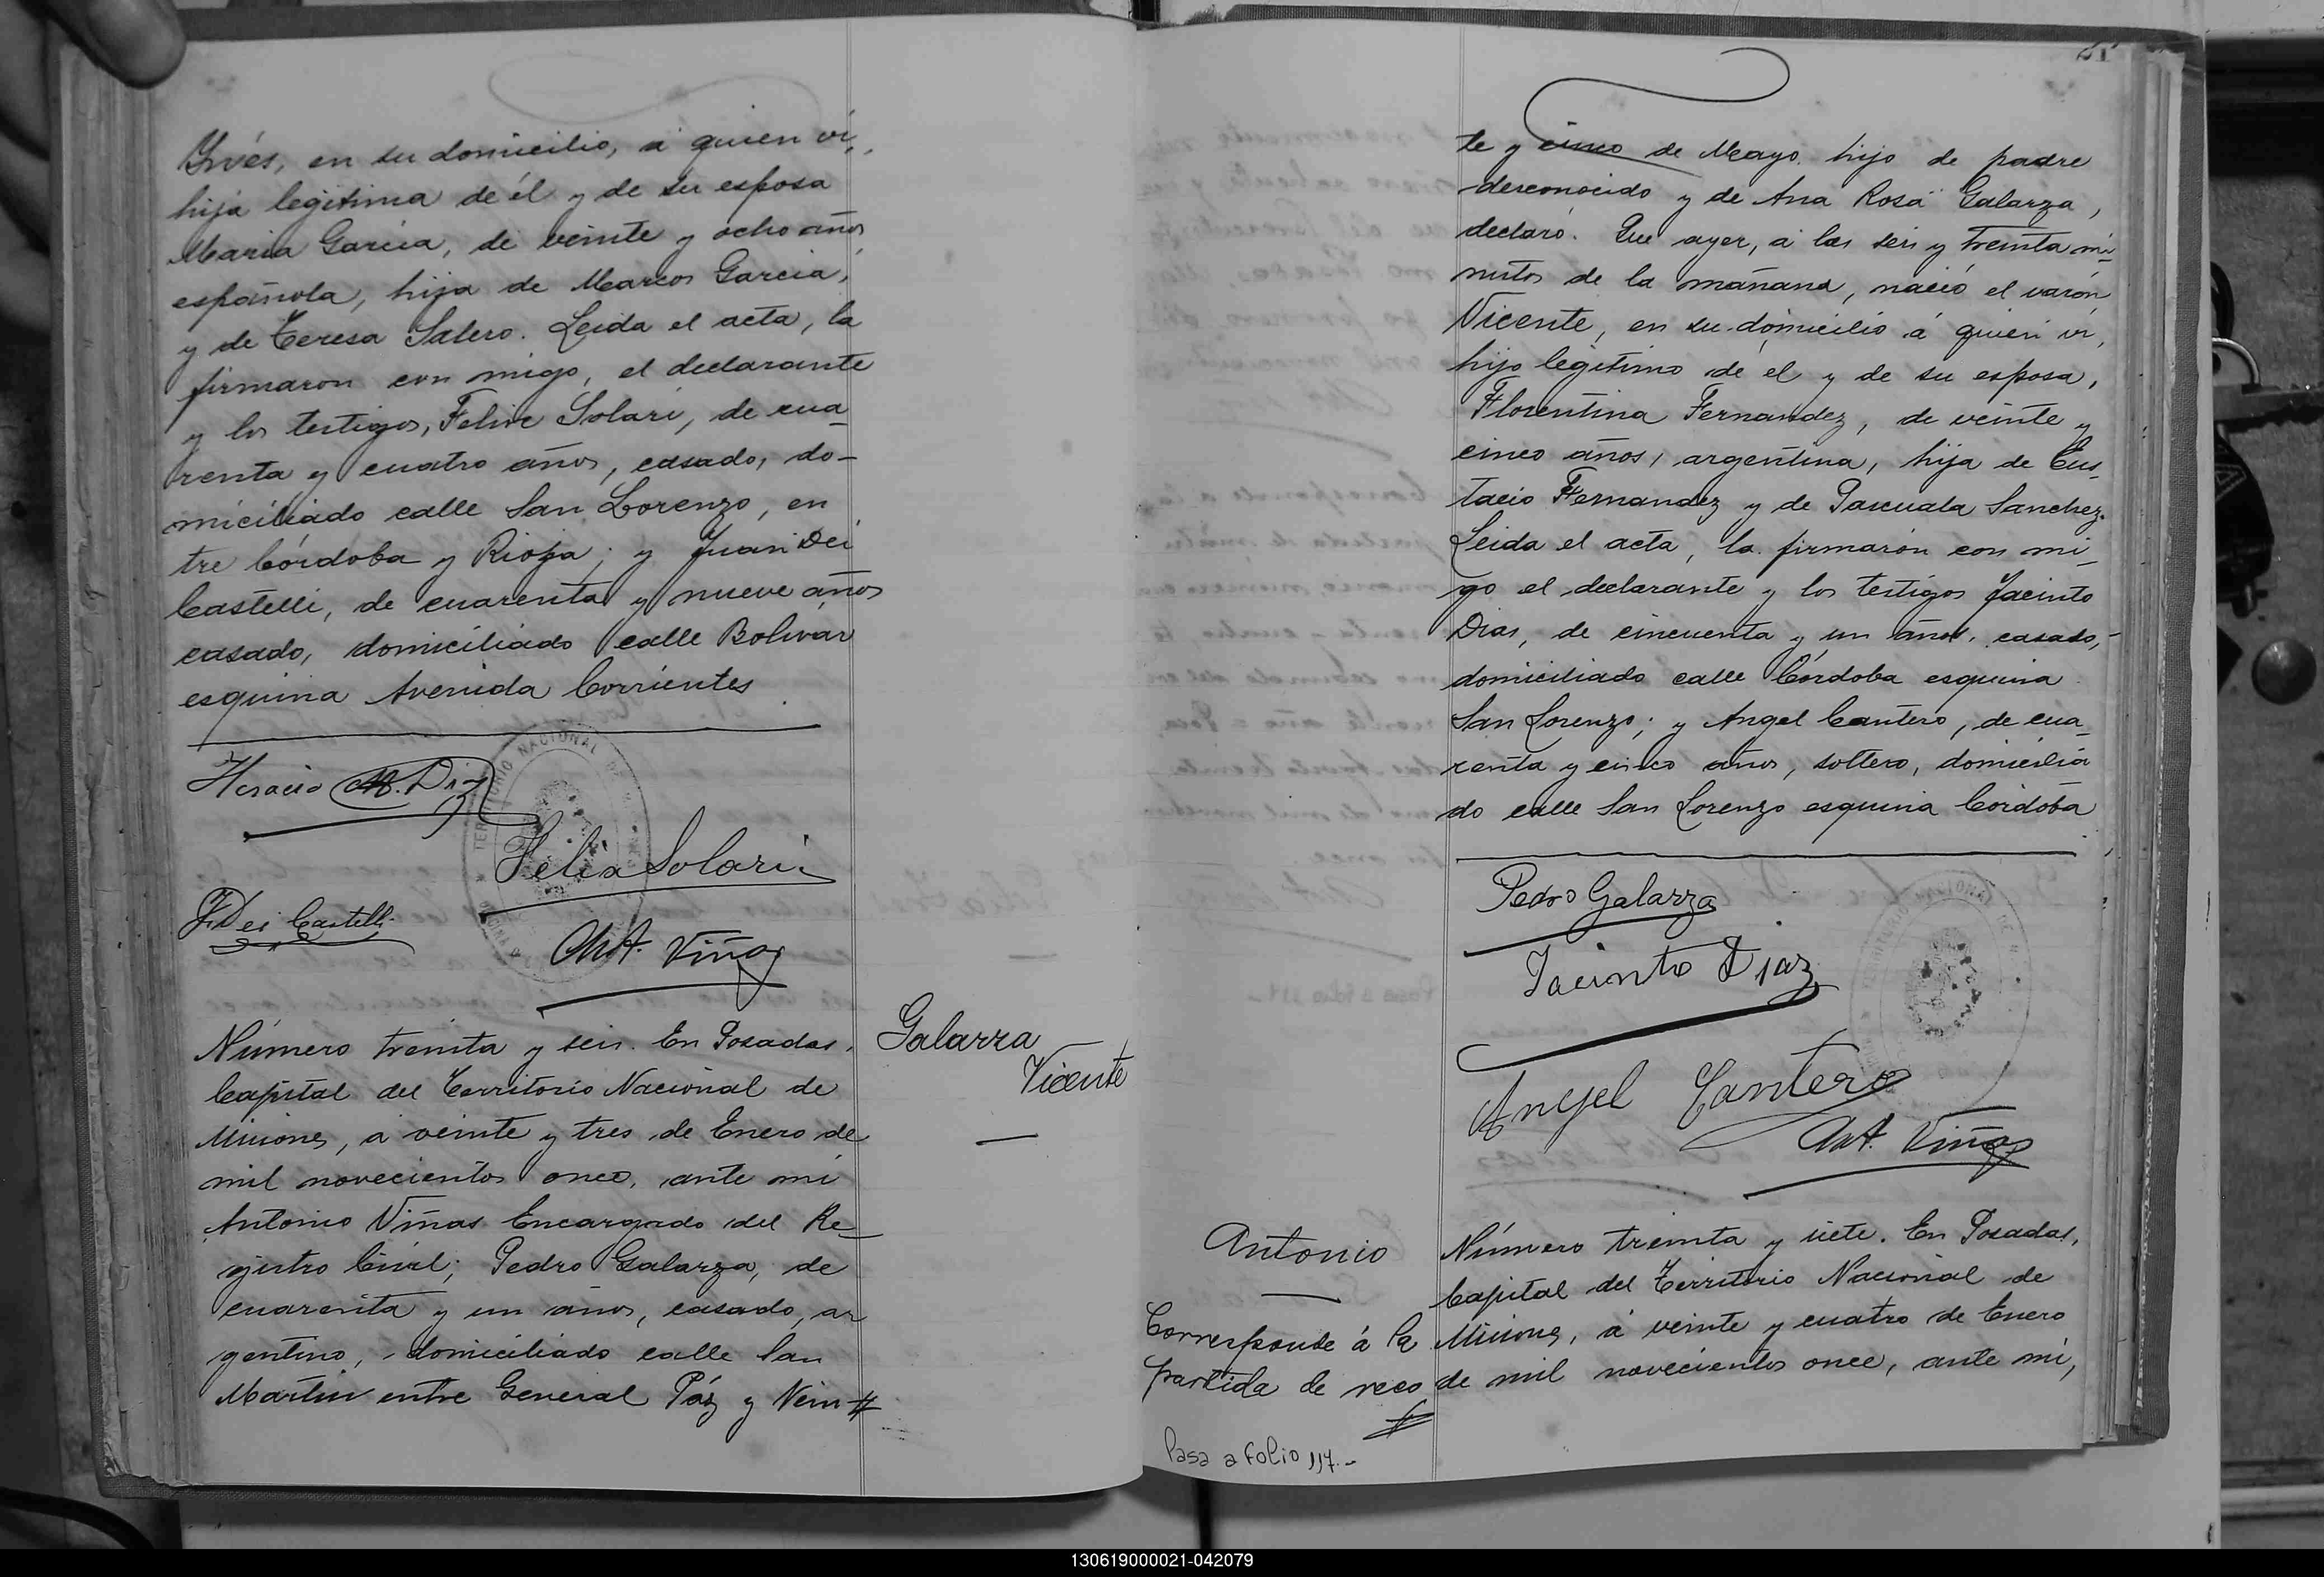 Ynés, en su domicilio, á quien ví,
hija legítima de él y de su esposa
Maria Garcia, de veinte y ocho años
española, hija de Marcos Garcia,
y de Teresa Salero. Leida el acta, la
firmaron con migo, el declarante
y los testigos, Felix Solari, de cua
renta y cuatro años, casado, do-
miciliado calle San Lorenzo, en
tre Córdoba y Rioja; y Juan Dei
Castelli, de cuarenta y nueve años
casado, domiciliado calle Bolivar
esquina Avenida Corrientes
Horacio M. Diz
Felix Solari
J Dei Castelli
Ant. Viñas
Número treinta y seis. En Posadas,
Capital del Territorio Nacional de
Misiones, á veinte y tres de Enero de
mil novecientos once, ante mi
Antonio Viñas Encargado del Re-
gistro Civil; Pedro Galarza, de
cuarenta y un años, casado, ar
gentino, domiciliado calle San
Martin entre General Páz y Vein #
Galarza
Vicente
21
te y cinco de Mayo hijo de padre
desconocido y de Ana Rosa Galarza,
declaró. Que ayer, á las seis y treinta mi-
nutos de la mañana, nació el varón
Vicente, en su domicilio á quien ví,
hijo legítimo de él y de su esposa,
Florentina Fernandez, de veinte y
cinco años, argentina, hija de Eus-
tacio Fernandez y de Pascuala Sanchez.
Leida el acta, la firmarón con mi-
go el declarante y los testigos Jacinto
Dias, de cincuenta y un años, casado,-
domiciliado calle Córdoba esquina
San Lorenzo; y Angel Cantero, de cua-
renta y cinco años, soltero, domicilia
do calle San Lorenzo esquina Córdoba
Pedro Galarza
Jacinto Diaz
Angel Cantero
Ant. Viñas
Antonio
Corresponde á la
partida de reco
#
Pasa a folio 117.-
Número treinta y siete. En Posadas,
Capital del Territorio Nacional de
Misiones, á veinte y cuatro de Enero
de mil novecientos once, ante mi,
130619000021-042079